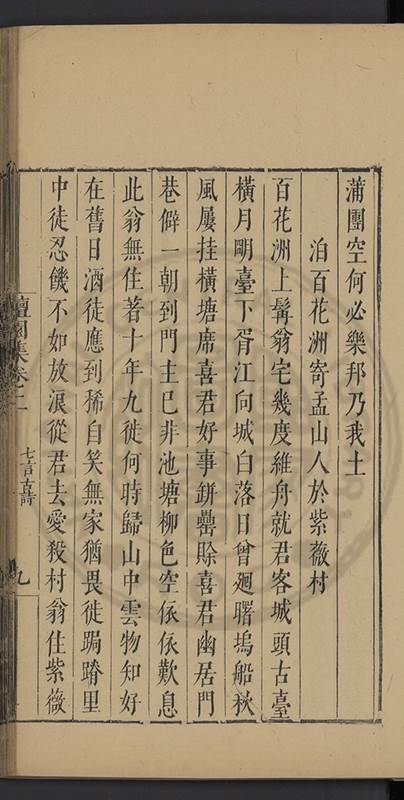 蒲團空何必樂邦乃我土
泊百花洲寄孟山人於紫薇村
百花洲上髯翁宅幾度維舟就君客城頭古臺
橫月明臺下胥江向城白落日曾廻曙塢船秋
風屢挂橫塘席喜君好事缾罍賒喜君幽居門
巷僻一朝到門主已非池塘柳色空依依歎息
此翁無住著十年九徙何時歸山中雲物知好
在舊日酒徒應到稀自笑無家猶畏徙跼蹐里
中徒忍饑不如放浪從君去愛殺村翁住紫薇
園集卷之二
七言古詩
九